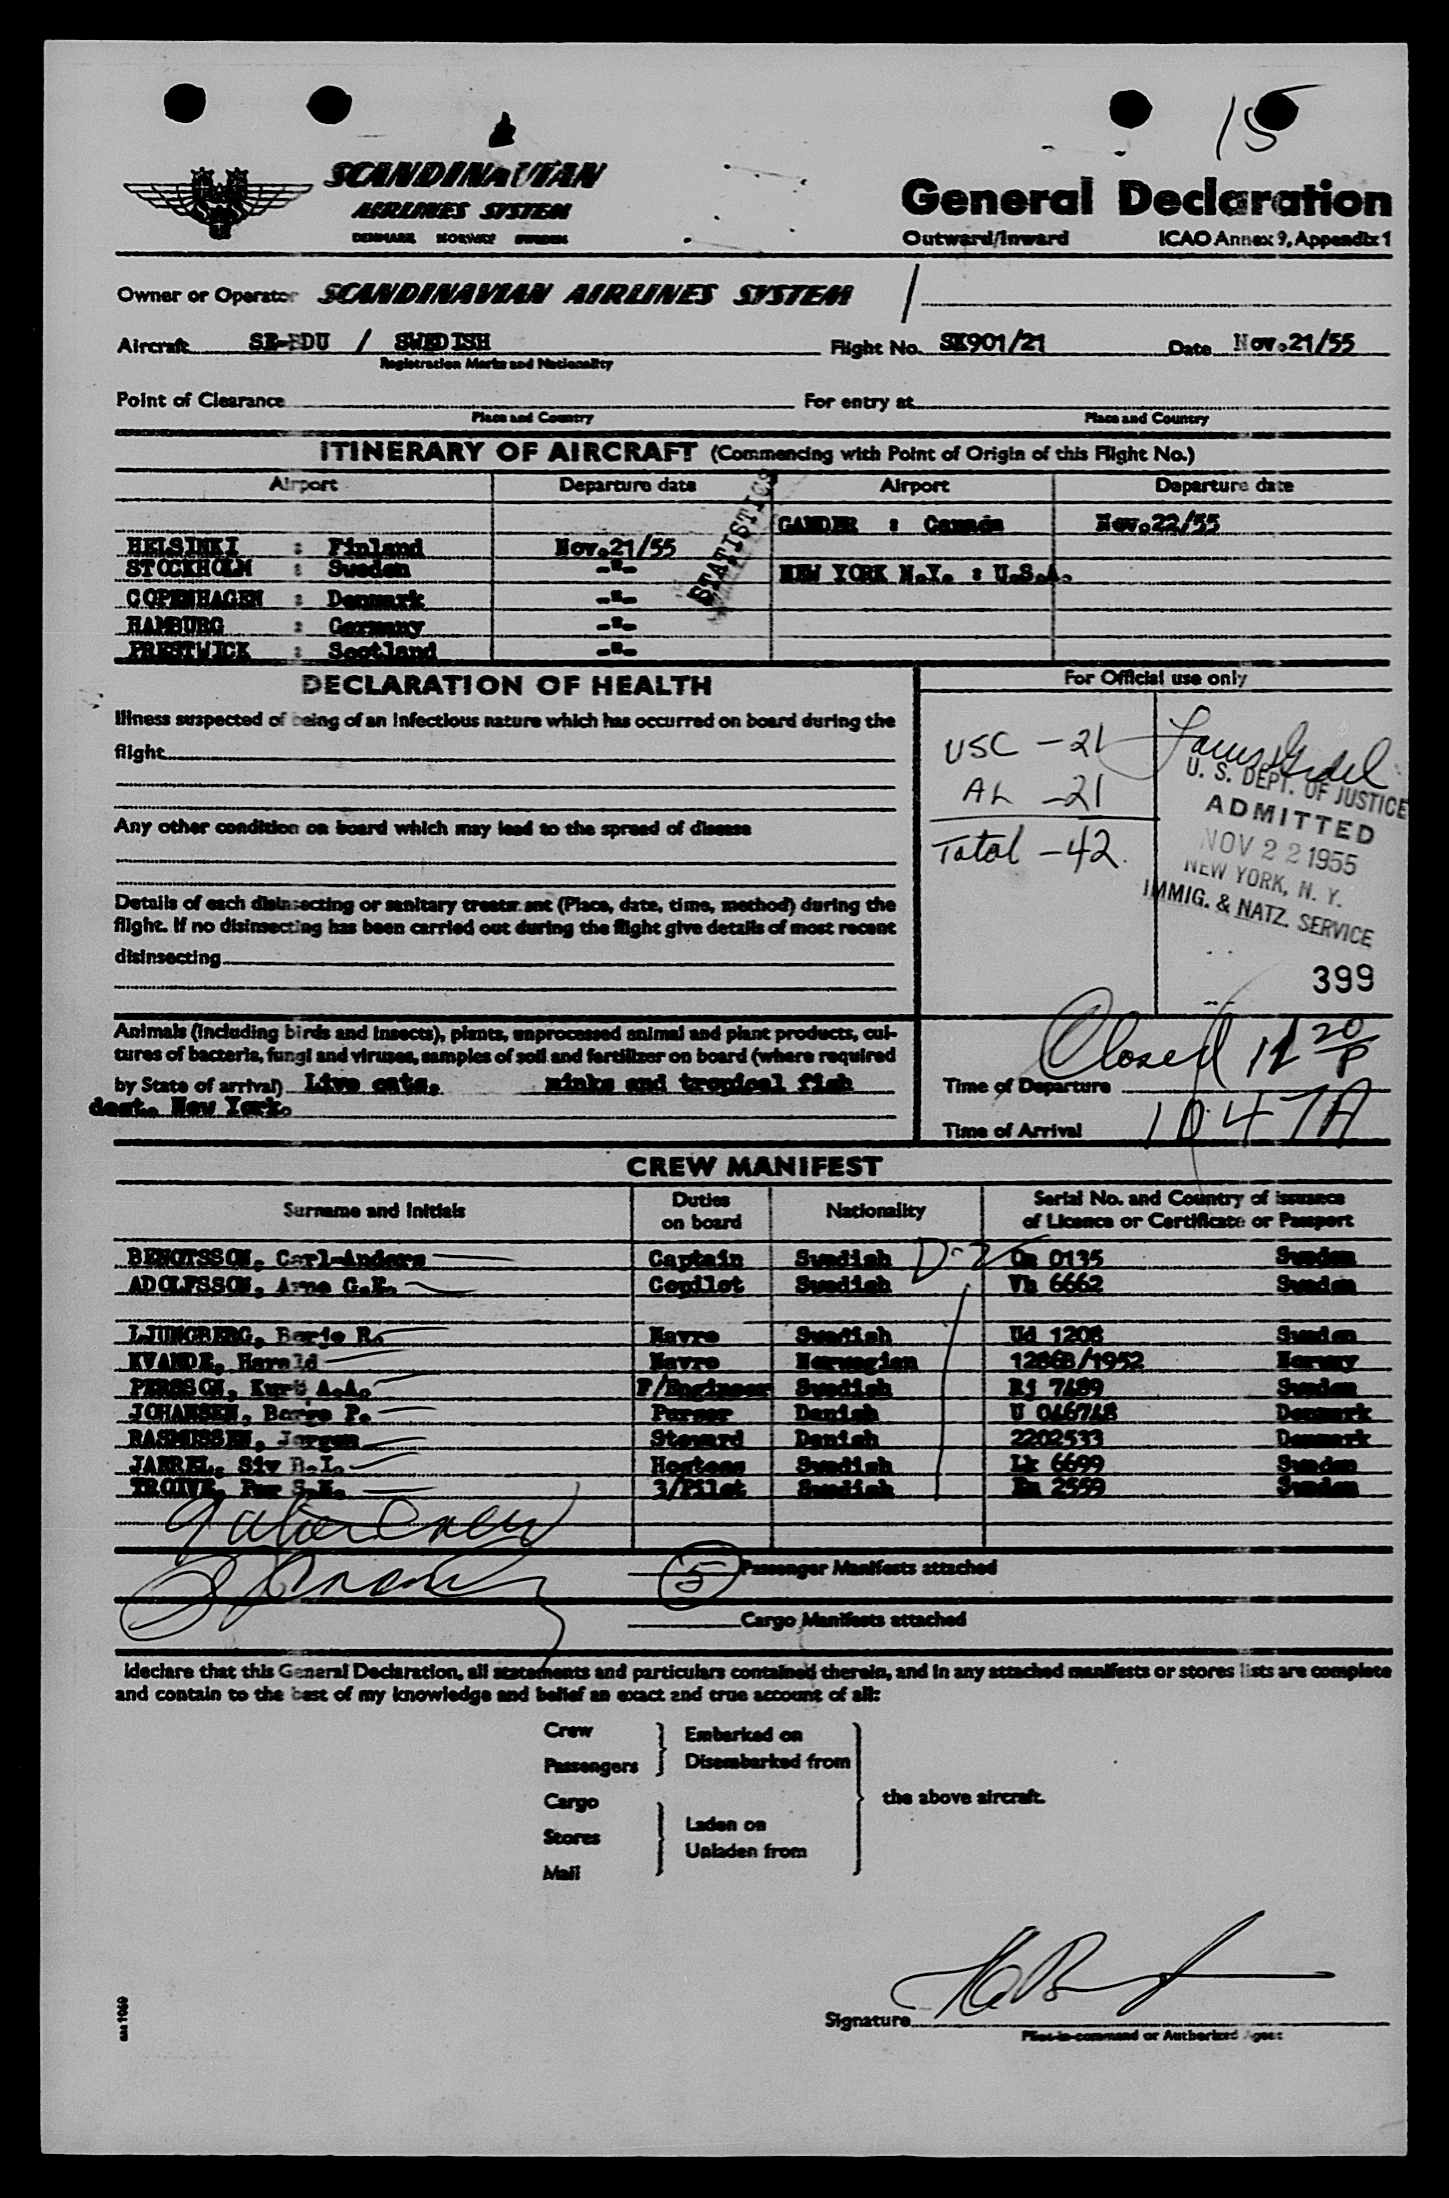 15
SCANDINAVIAN
AIRLINES SYSTEM
DENMARK NORWAY SWEDEN
General Declaration
Outward/Inward ICAO Annex 9, Appendix 1
Owner or Operator SCANDINAVIAN AIRLINES SYSTEM /
Aircraft SE-BDU / SWEDISH Flight No. SK901/21 Date Nov.21/55
Registration Marks and Nationality
Point of Clearance For entry at
Place and Country Place and Country
ITINERARY OF AIRCRAFT (Commencing with Point of Origin of this Flight No.)
Airport Departure date Airport Departure date
STATISTICS
GANDER : Canada Nov.22/55
HELSINKI : Finland Nov.21/55
STOCKHOLM : Sweden -"- NEW YORK N.Y. : U.S.A.
COPENHAGEN : Denmark -"-
HAMBURG : Germany -"-
PRESTWICK : Scotland -"-
DECLARATION OF HEALTH
Illness suspected of being of an infectious nature which has occurred on board during the
flight
Any other condition on board which may lead to the spread of disease
Details of each disinsecting or sanitary treatment (Place, date, time, method) during the
flight. If no disinsecting has been carried out during the flight give details of most recent
disinsecting
For Official use only
USC - 21
AL - 21
Total - 42.
U. S. DEPT. OF JUSTICE
ADMITTED
NOV 22 1955
NEW YORK, N. Y.
IMMIG. & NATZ. SERVICE
399
Animals (including birds and insects), plants, unprocessed animal and plant products, cul-
tures of bacteria, fungi and viruses, samples of soil and fertilizer on board (where required
by State of arrival) Live cats, minks and tropical fish
dest. New York.
Closed 12 20/P
Time of Departure
Time of Arrival 1047A
CREW MANIFEST
Surname and Initials Duties on board Nationality Serial No. and Country of issuance of Licence or Certificate or Passport
BENGTSSON, Carl-Anders Captain Swedish D-2 0135 Sweden
ADOLFSSON, Arne G.E. Copilot Swedish Vh 6662 Sweden
LJUNGBERG, Borje R. Navro Swedish Ud 1208 Sweden
KVANDE, Harald Navro Norwegian 1286B/1952 Norway
PERSSON, Kurt A.A. F/Engineer Swedish Rj 7489 Sweden
JOHANSEN, Borge P. Purser Danish U 046748 Denmark
RASMUSSEN, Jorgen Steward Danish 2202533 Denmark
JARREL, Siv B.I. Hostess Swedish Lk 6699 Sweden
TROIVE, Per S.E. 3/Pilot Swedish 2559 Sweden
5 Passenger Manifests attached
Cargo Manifests attached
I declare that this General Declaration, all statements and particulars contained therein, and in any attached manifests or stores lists are complete
and contain to the best of my knowledge and belief an exact and true account of all:
Crew
Passengers
Embarked on
Disembarked from
Cargo
Stores
Mail
Laden on
Unladen from
the above aircraft.
Signature
Pilot-in-command or Authorized Agent